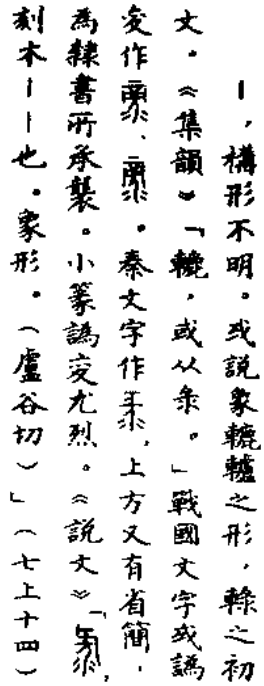 ｜，構形不明。或説象轆轤之形，之初
文。《集韻》「轆，或从彔。」戰國文字或譌
變作、。秦文字作，上方又有省簡，
為隸書所承襲。小篆譌變尤烈。《説文》「，
刻木｜｜也。象形。（盧谷切）」（七上十四）